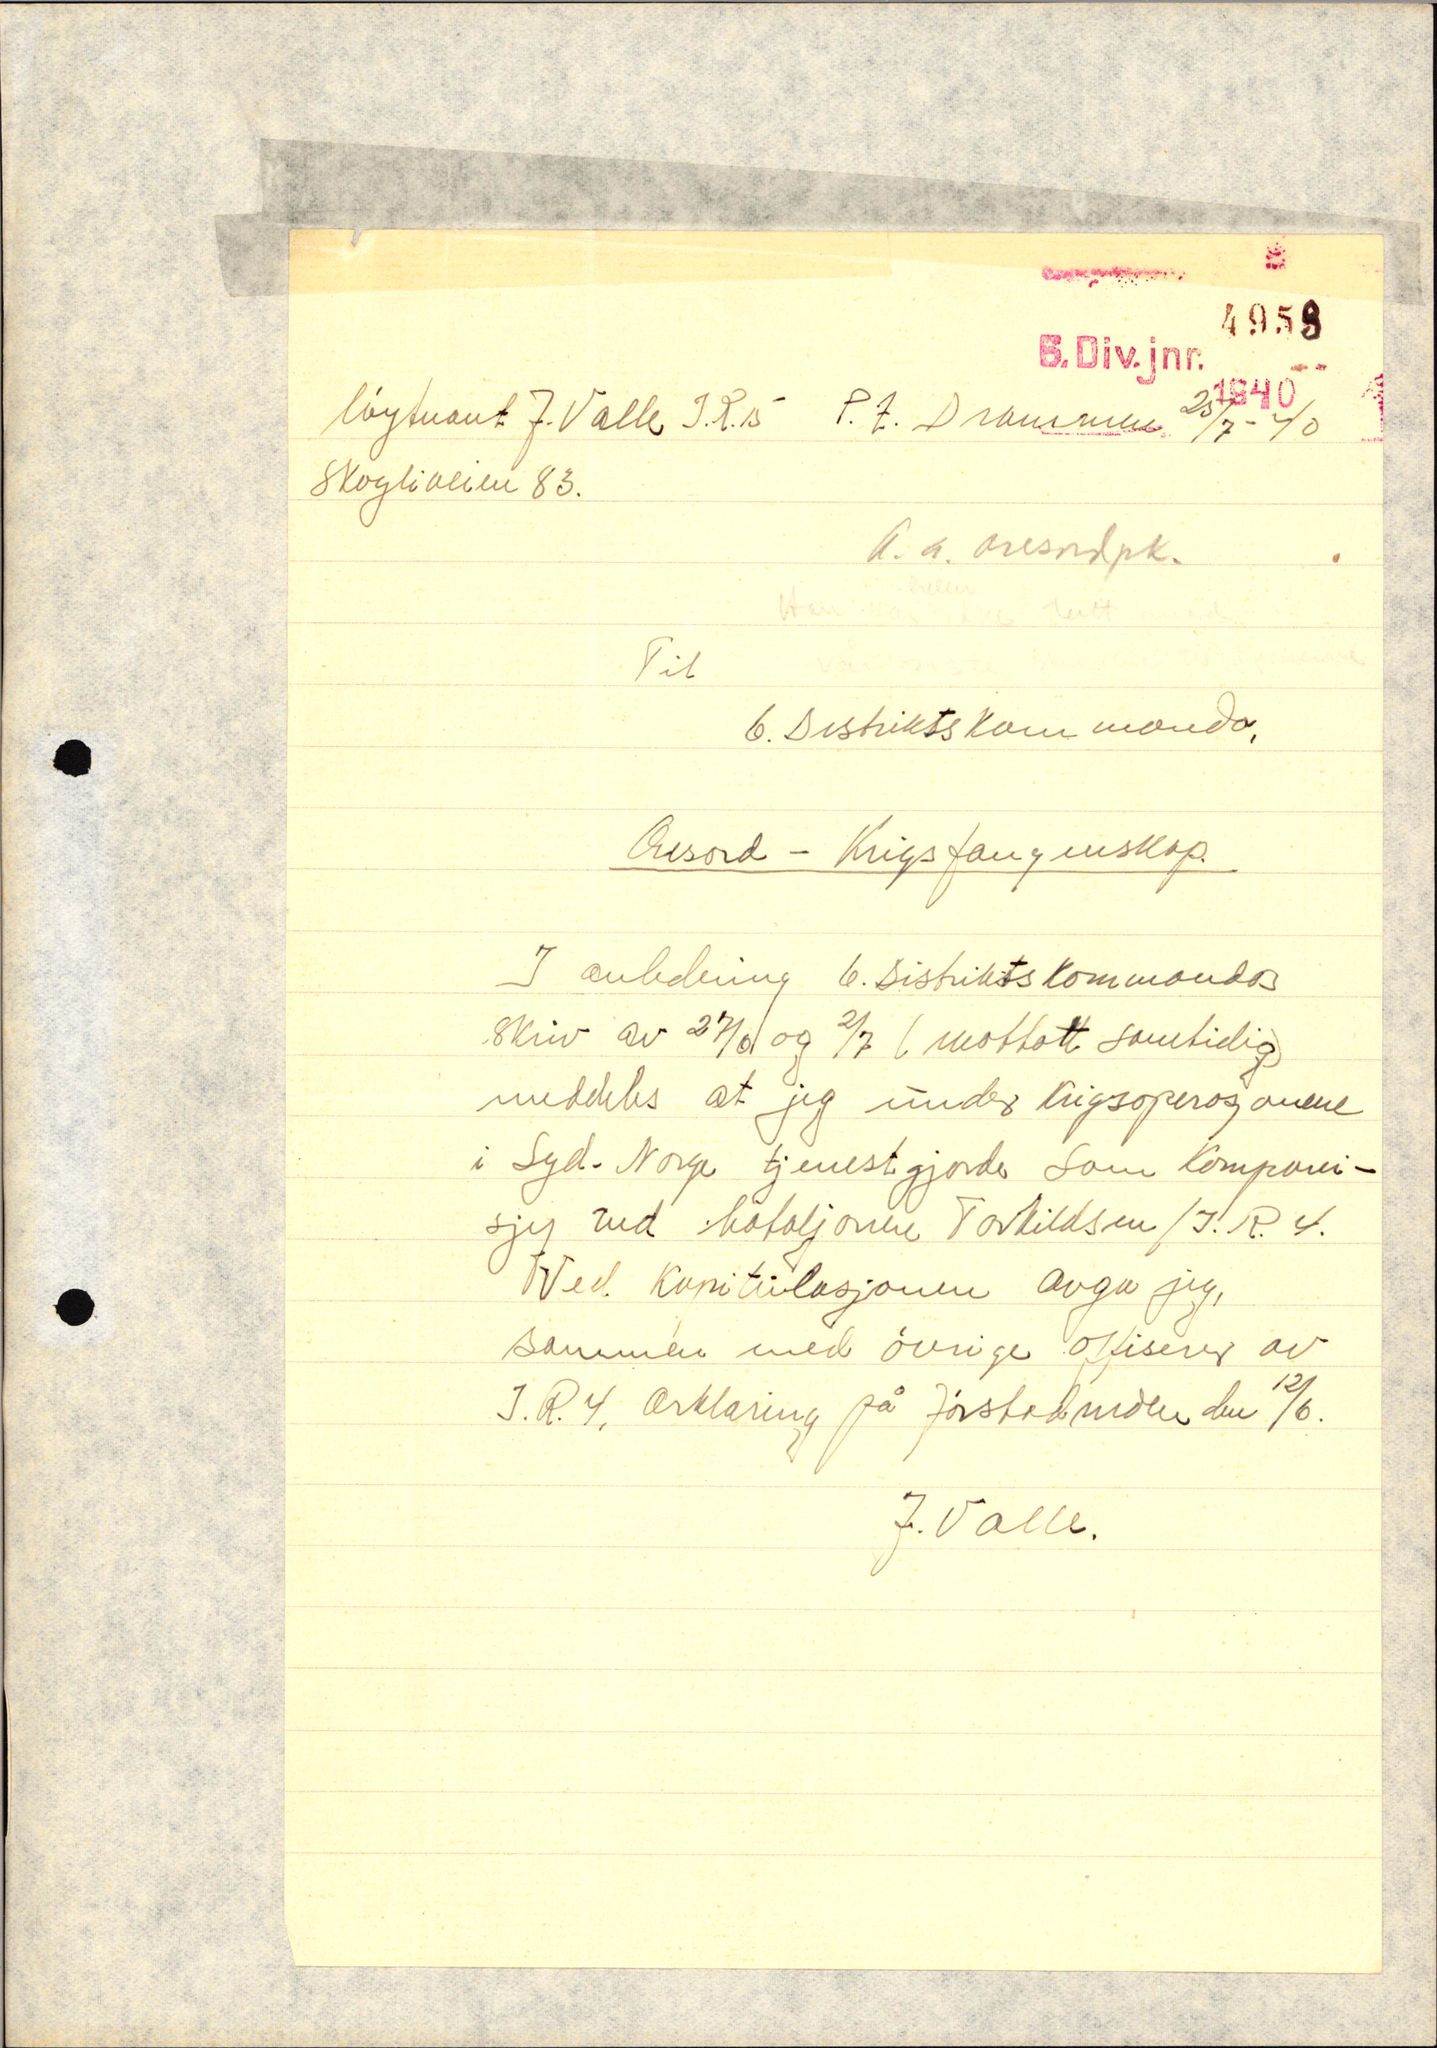 4958
6. Div. jnr.
1940
Løytnant J. Valle I.R. 15 P. t. Drammen 25/7 - 40
Skogliveien 83.
A. a. æresordpk.
Til
6. Distriktskommando.
Æresord - Krigsfangenskap.
I anledning 6. Distriktskommandos
skriv av 27/6 og 2/7 (mottatt samtidig)
meddeles at jeg under krigsoperasjonene
i Syd-Norge tjenestgjorde som kompani-
sjef ved bataljonen Torkildsen / I.R. 4.
Ved kapitulasjonen avga jeg,
sammen med øvrige offiserer av
I.R. 4, ærklæring på Jørstadmoen den 12/6.
J. Valle.